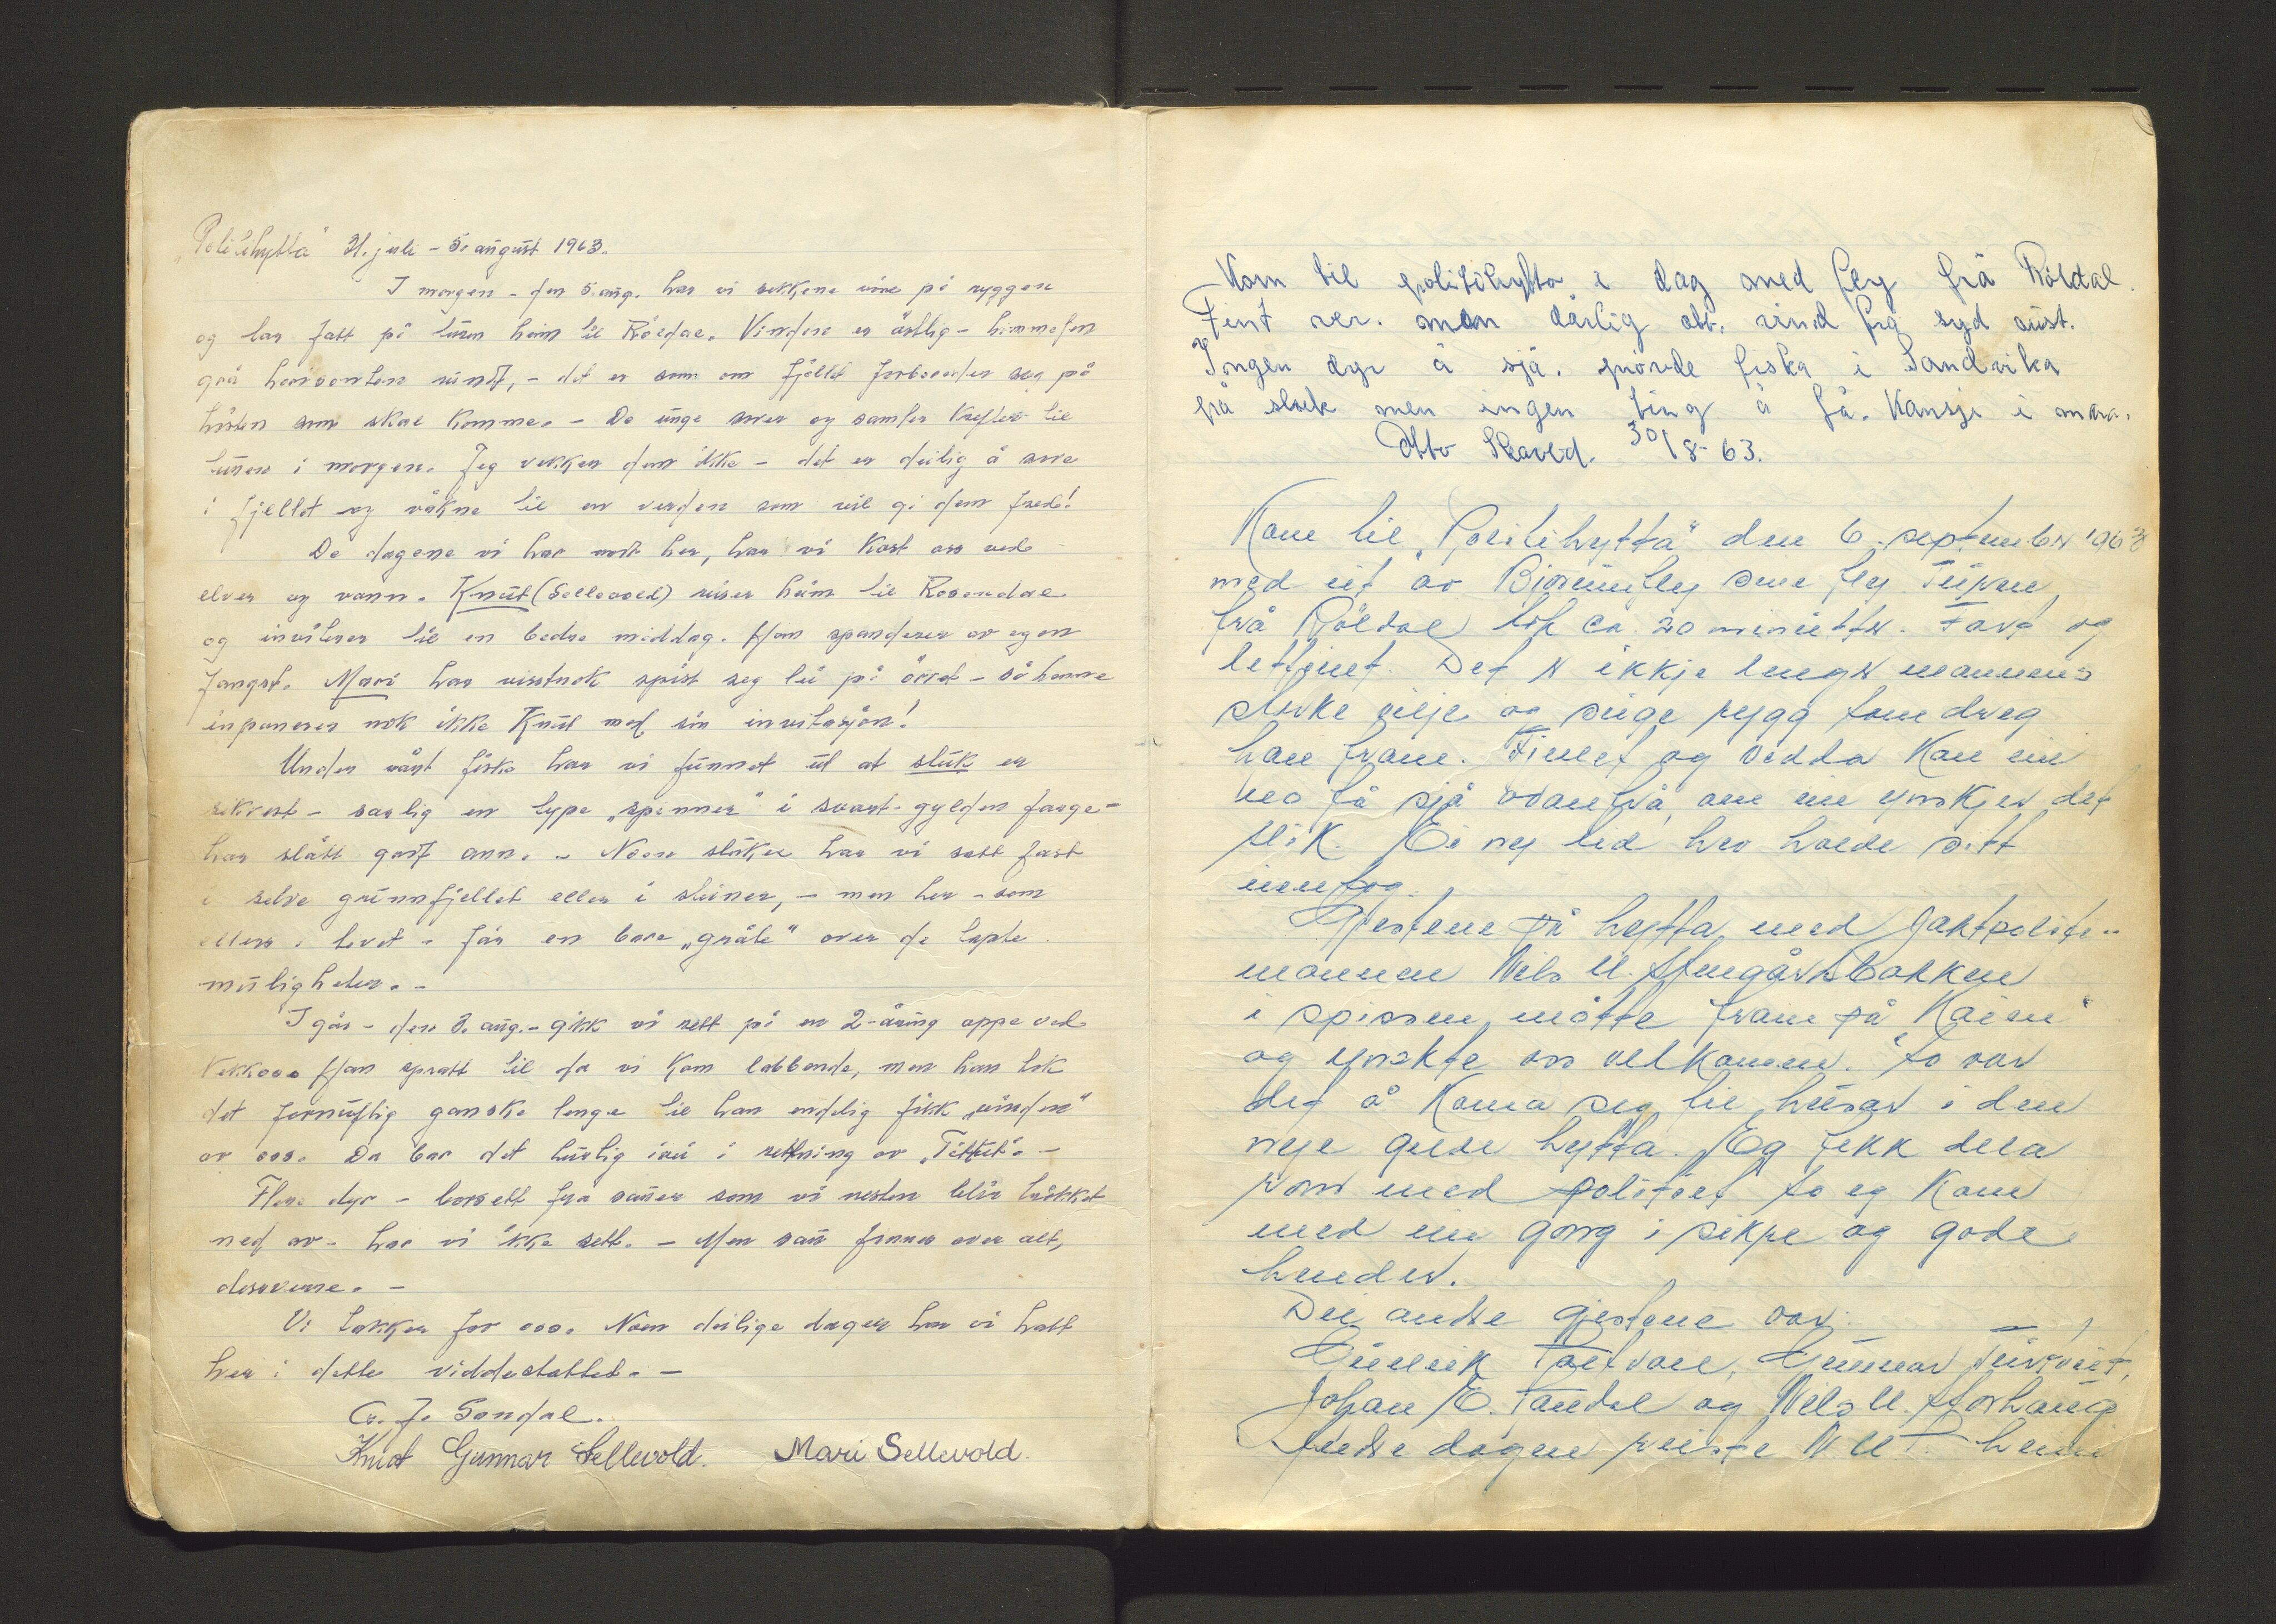 "Politihytta" 31. juli - 5. august 1963.
I morgen - den 5. aug. har vi sekkene våre på ryggen
og tar fatt på turen heim til Röldal. Vinden er östlig - himmelen
grå horisonten rundt, - det er som om fjellet forbereder seg på
hösten som skal komme. - De unge sover og samler krefter til
turen i morgen. Jeg vekker dem ikke - det er deilig å sove
i fjellet og våkne til en verden som vil gi dem fred!
De dagene vi har vært her, har vi kost oss ved
elver og vann. Knut (Sellevold) reiser heim til Rosendal
og inviterer til en bedre middag. Han spanderer av egen
fangst. Mari har visstnok spist seg lei på örret - så henne
inponerer nok ikke Knut med sin invitasjon!
Under vårt fiske har vi funnet ut at sluk er
sikrest - særlig en type "spinner" i svart-gylden farge -
har slått godt ann. - Noen sluker har vi satt fast
i selve grunnfjellet eller i steiner, - men her - som
ellers i livet - får en bare "gråte" over de tapte
muligheter. -
I går - den 3. aug. - gikk vi rett på en 2-åring oppe ved
Han spratt til da vi kom labbende, men han tok
det fornuftig ganske lenge til han endelig fikk "vinden"
av oss. Da bar det hurtig i vei i retning av
Flere dyr - borsett fra sauer som vi nesten blir tråkket
ned av - har vi ikke sett. - Men sau finnes over alt,
dessverre. -
Vi takker for oss. Noen deilige dager har vi hatt
her i dette viddeslottet. -
J. Sandal.
Knut Gunnar Sellevold. Mari Sellevold.
Kom til politihytta i dag med fly frå Röldal.
Fint ver. men dårlig vind frå syd aust.
Ingen dyr å sjå. prövde fiska i Sandvika
på sluk men ingen ting å få. Kansje i mara.
Otto 30/8-63.
Kom til "Politihytta" den 6. september 1963
med eit av Björumfly sine fly. Turen
frå Röldal tok ca. 20 minutter. Fart og
lettvint. Det er ikkje lenger mannens
sterke vilje og seige rygg som dreg
han fram. Fjellet og vidda kan ein
no få sjå ovanfrå, om ein ynskjer det
slik. Ei ny tid hev halde sitt
inntog.
Gjestene på hytta med jaktpoliti-
mannen Nils U.
i spissen, møtte fram på "Kaien"
og ynskte oss velkomen. So var
det å koma seg til husar i den
nye gilde hytta. Eg fekk dela
rom med politiet so eg kom
med ein gong i sikre og gode
hender.
Dei andre gjestene var:
Gunleik Gunnar
Johan E. og Nils U. Storhaug
Andre dagen reiste N. U. heim